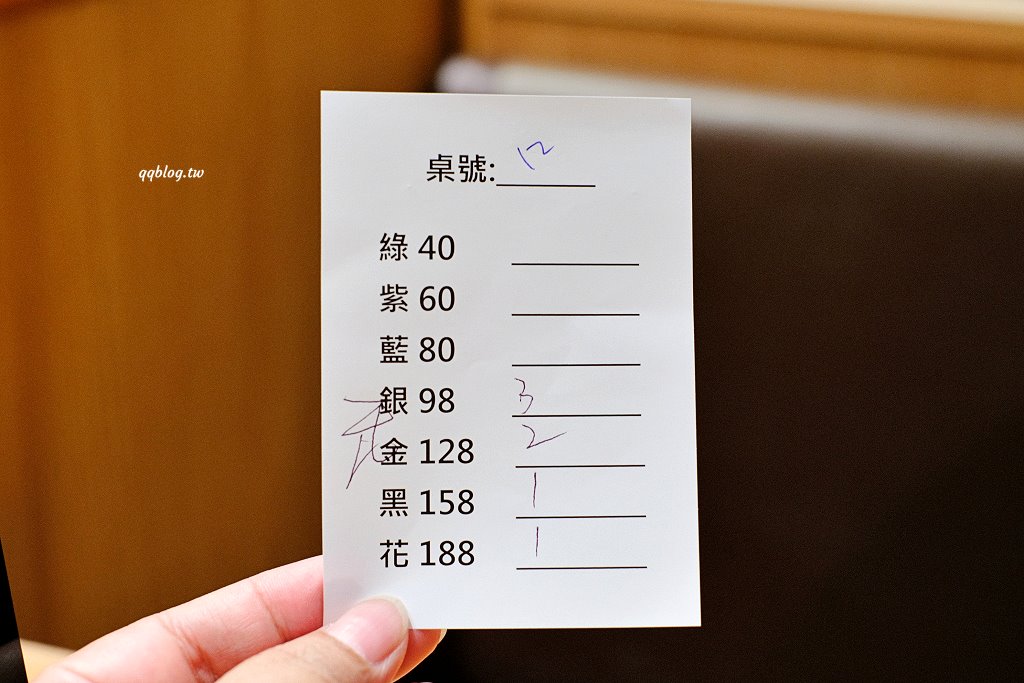 qqblog.tw
桌號: 12
綠 40
紫 60
藍 80
銀 98 3
金 128 2
黑 158 1
花 188 1